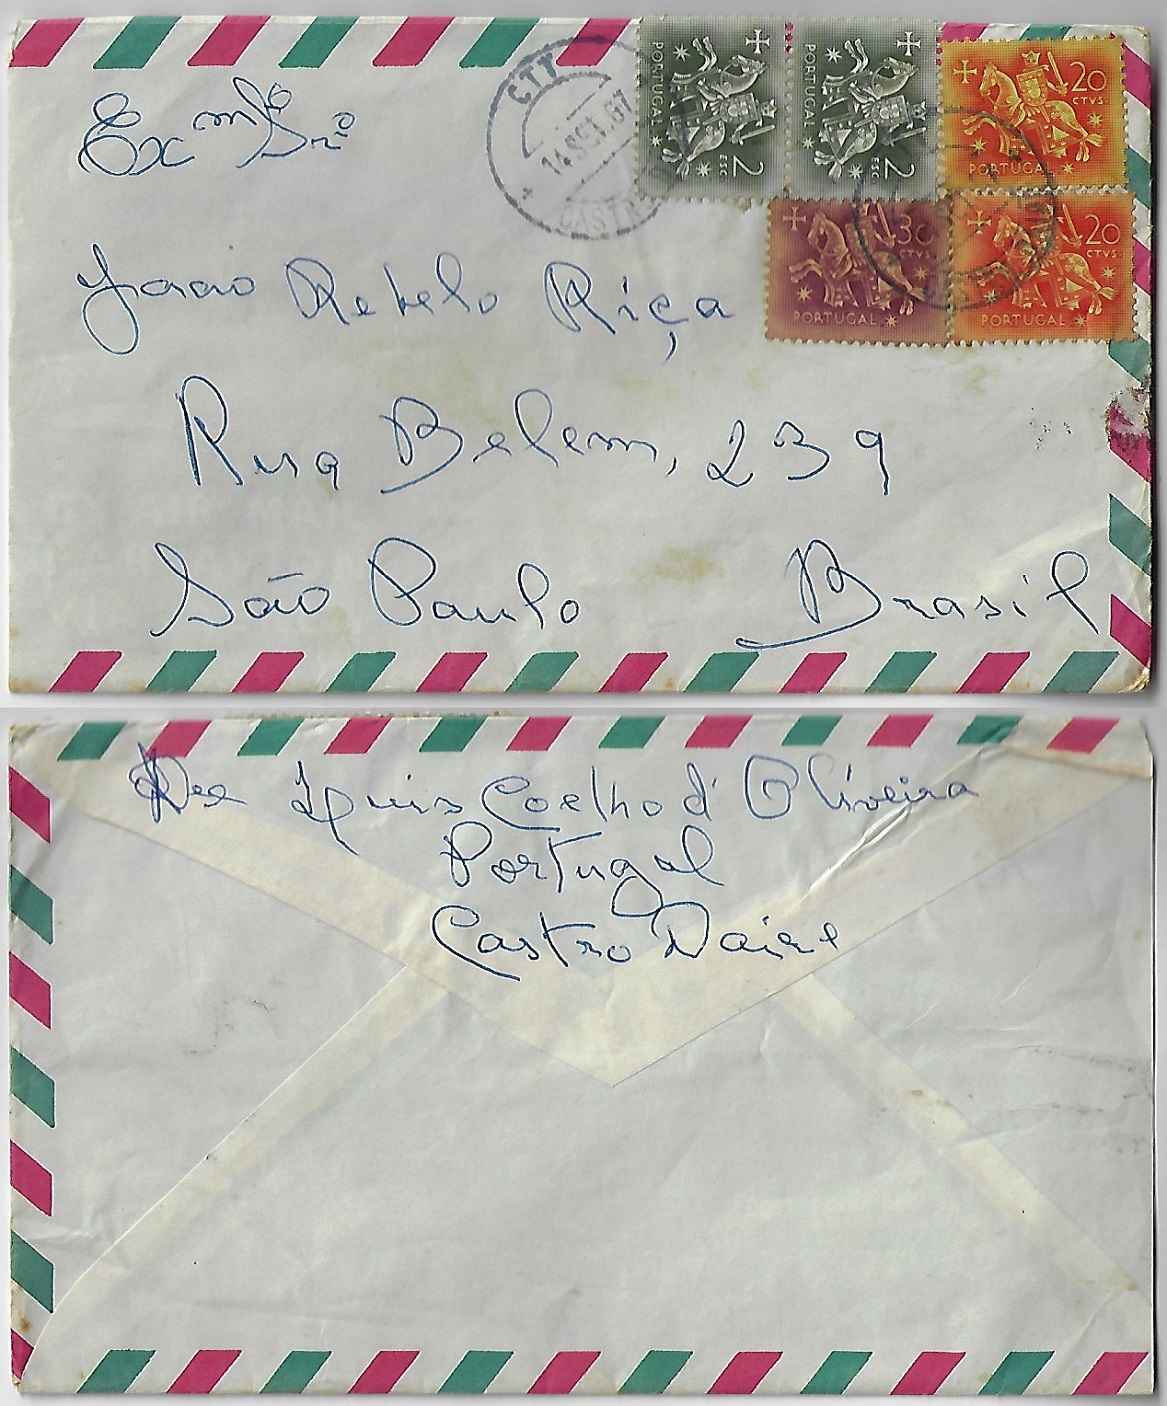 CTT
14 SET. 67
CASTRO
PORTUGAL
2 ESC
PORTUGAL
2 ESC
20
CTVS
PORTUGAL
30
CTVS
PORTUGAL
20
CTVS
PORTUGAL
Exmº Snrº
João Rebelo Riça
Rua Belem, 239
São Paulo Brasil
Luis Coelho d'Oliveira
Portugal
Castro Daire